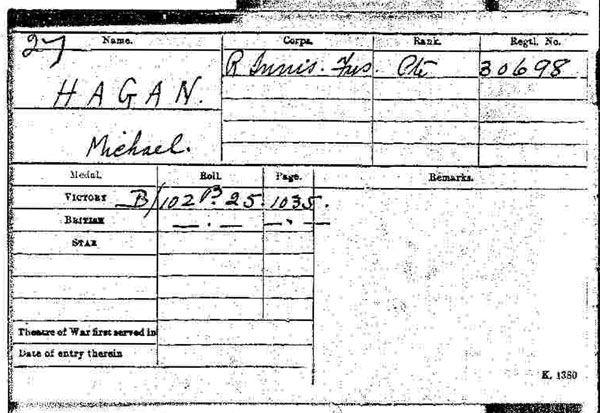 27
Name. Corps. Rank. Regtl. No.
HAGAN. R Innis. Fus. Pte 30698
Michael.
Medal. Roll. Page. Remarks.
VICTORY B/102 B. 25. 1035.
BRITISH —.— —.—
STAR
Theatre of War first served in
Date of entry therein
K. 1380